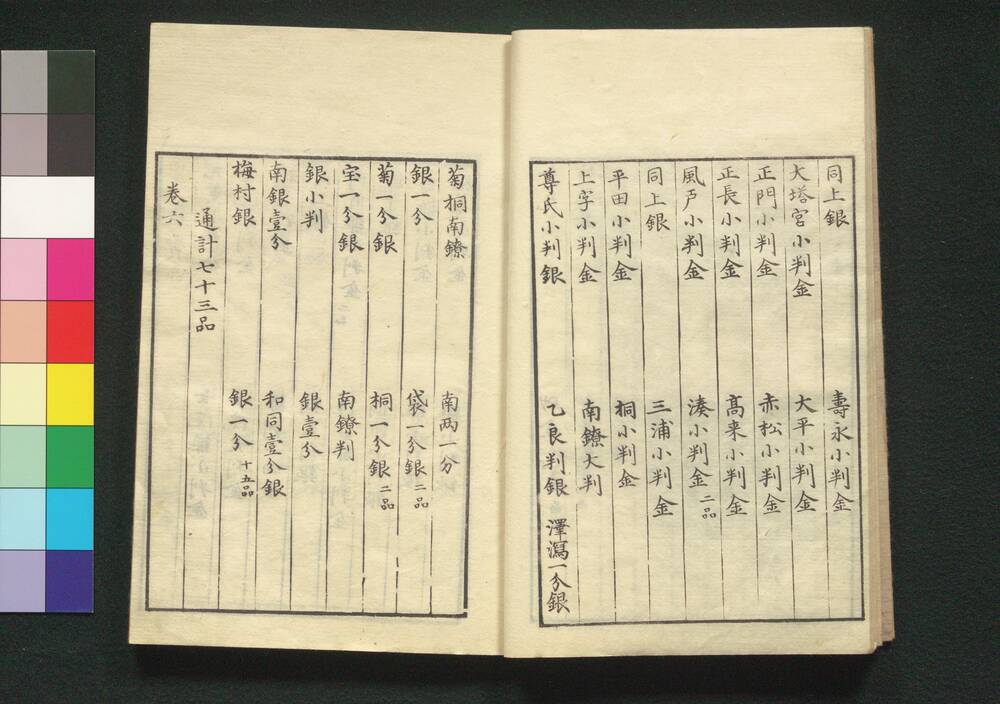 同上銀 壽永小判金
大塔宮小判金 大平小判金
正門小判金 赤松小判金
正長小判金 髙来小判金
風戸小判金 湊小判金二品
同上銀 三浦小判金
平田小判金 桐小判金
上字小判金 南鐐大判
尊氏小判銀 乙良判銀 澤瀉一分銀
菊桐南鐐 南両一分
銀一分 袋一分銀二品
菊一分銀 桐一分銀二品
宝一分銀 南鐐判
銀小判 銀壹分
南銀壹分 和同壹分銀
梅村銀 銀一分十五品
通計七十三品
巻六